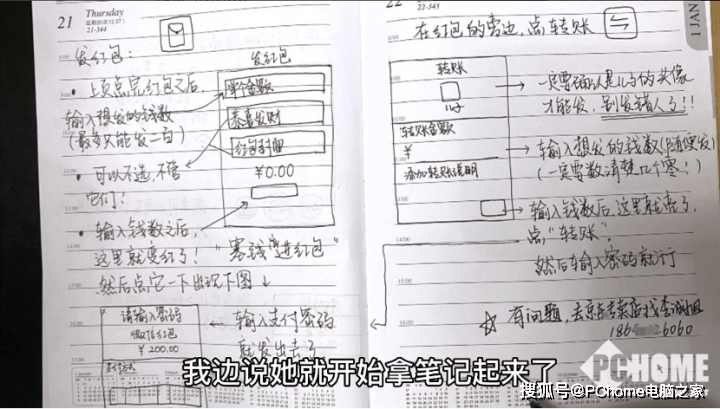 21 Thursday
星期四(农12.07)
21-344
发红包:
• 上页点完红包之后,
输入想发的钱数
(最多只能发二百)
• 可以不选,不管
它们!
• 输入钱数之后,
这里就变红了!“塞钱进红包”
然后点它一下出现下图↓
发红包
单个金额
恭喜发财
红包封面
¥0.00
请输入密码
微信红包
¥200.00
← 输入支付密码
就发出去了
22
22-343
1 JAN
在红包的旁边点转账
转账
儿子
转账金额
¥
添加转账说明
→ 一定要确认是儿子的头像
才能发,别发错人了!!
→ 输入想发的钱数(随便发)
(一定要数清楚几个零!)
→ 输入钱数后,这里就亮了,
点“转账”,
然后输入密码就行
☆ 有问题,去京东专卖店找李
6060
我边说她就开始拿笔记起来了
PCHOME
搜狐号@PChome电脑之家